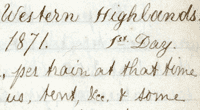 Western Highlands.
1871. 1st Day.
, per train at that time
us, tent, &c. & some